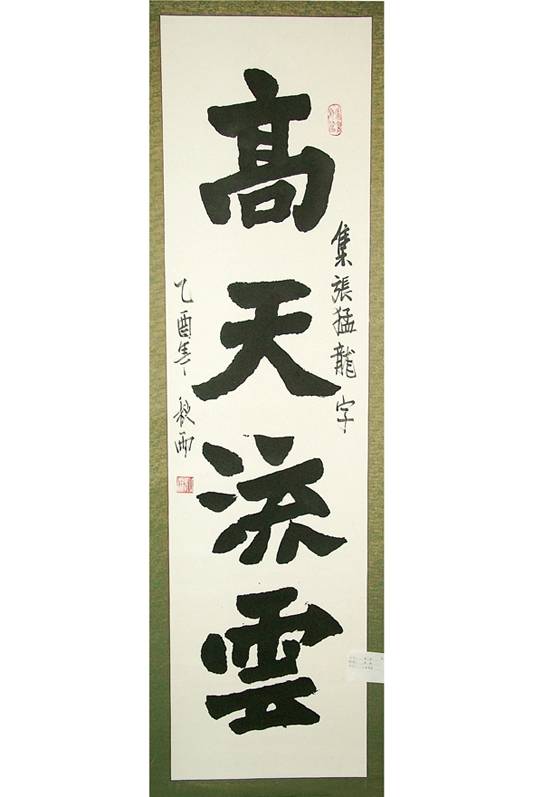 高天流雲
集張猛龍字
乙酉年 秋雨